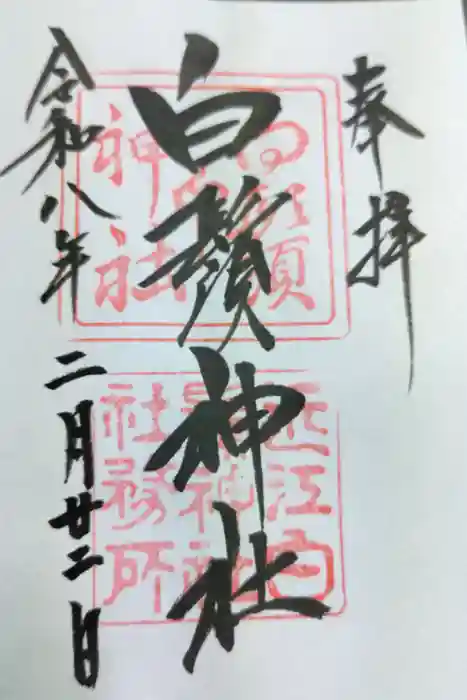 奉拝
白鬚神社
令和八年二月廿二日
白鬚
神社
近江白
鬚神社
社務所